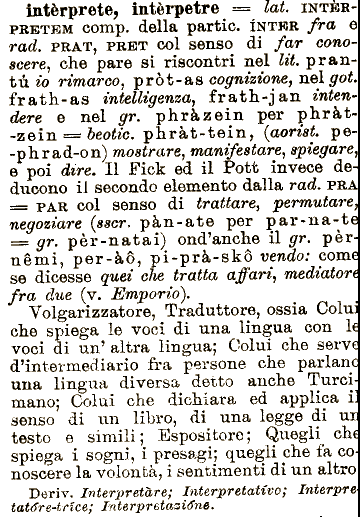 intèrprete, intèrpetre = lat. INTÈR-
PRETEM comp. della partic. ÍNTER fra e
rad. PRAT, PRET col senso di far cono-
scere, che pare si riscontri nel lit. pran-
tù io rimarco, pròt-as cognizione, nel got.
frath-as intelligenza, frath-jan inten-
dere e nel gr. phràzein per phràt-
-zein = beotic. phràt-tein, (aorist. pe-
-phrad-on) mostrare, manifestare, spiegare,
e poi dire. Il Fick ed il Pott invece de-
ducono il secondo elemento dalla rad. PRA
= PAR col senso di trattare, permutare,
negoziare (sscr. pàn-ate per par-na-te
= gr. pèr-natai) ond'anche il gr. pèr-
nêmi, per-àô, pi-prà-skô vendo: come
se dicesse quei che tratta affari, mediatore
fra due (v. Emporio).
Volgarizzatore, Traduttore, ossia Colui
che spiega le voci di una lingua con le
voci di un' altra lingua; Colui che serve
d'intermediario fra persone che parlano
una lingua diversa detto anche Turci-
mano; Colui che dichiara ed applica il
senso di un libro, di una legge di un
testo e simili; Espositore; Quegli che
spiega i sogni, i presagi; quegli che fa co-
noscere la volontà, i sentimenti di un altro
Deriv. Interpretàre; Interpretatívo; Interpre-
tatóre-tríce; Interpretazióne.